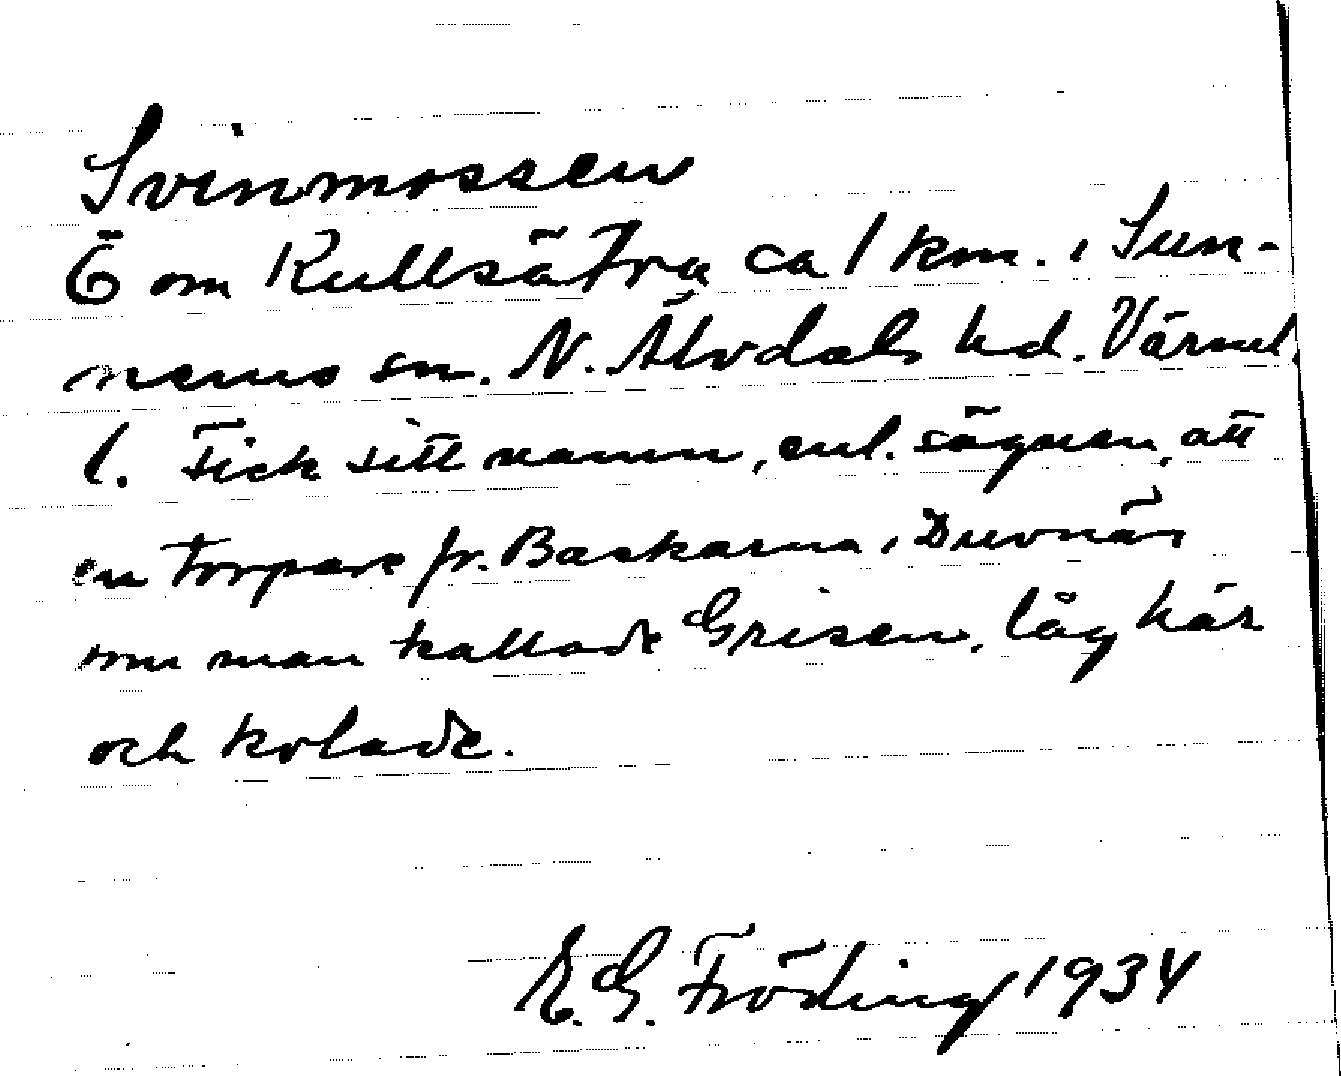 Svinmossen
Ö om Kullsätra ca 1 km. i Sun-
nemo sn. N. Älvdals hd. Värml.
l. Fick sitt namn, enl. sägnen, att
en torpare fr. Backarna i Duvnäs
som man kallade Grisen, låg här
och kolade.
E. G. Fröding 1934